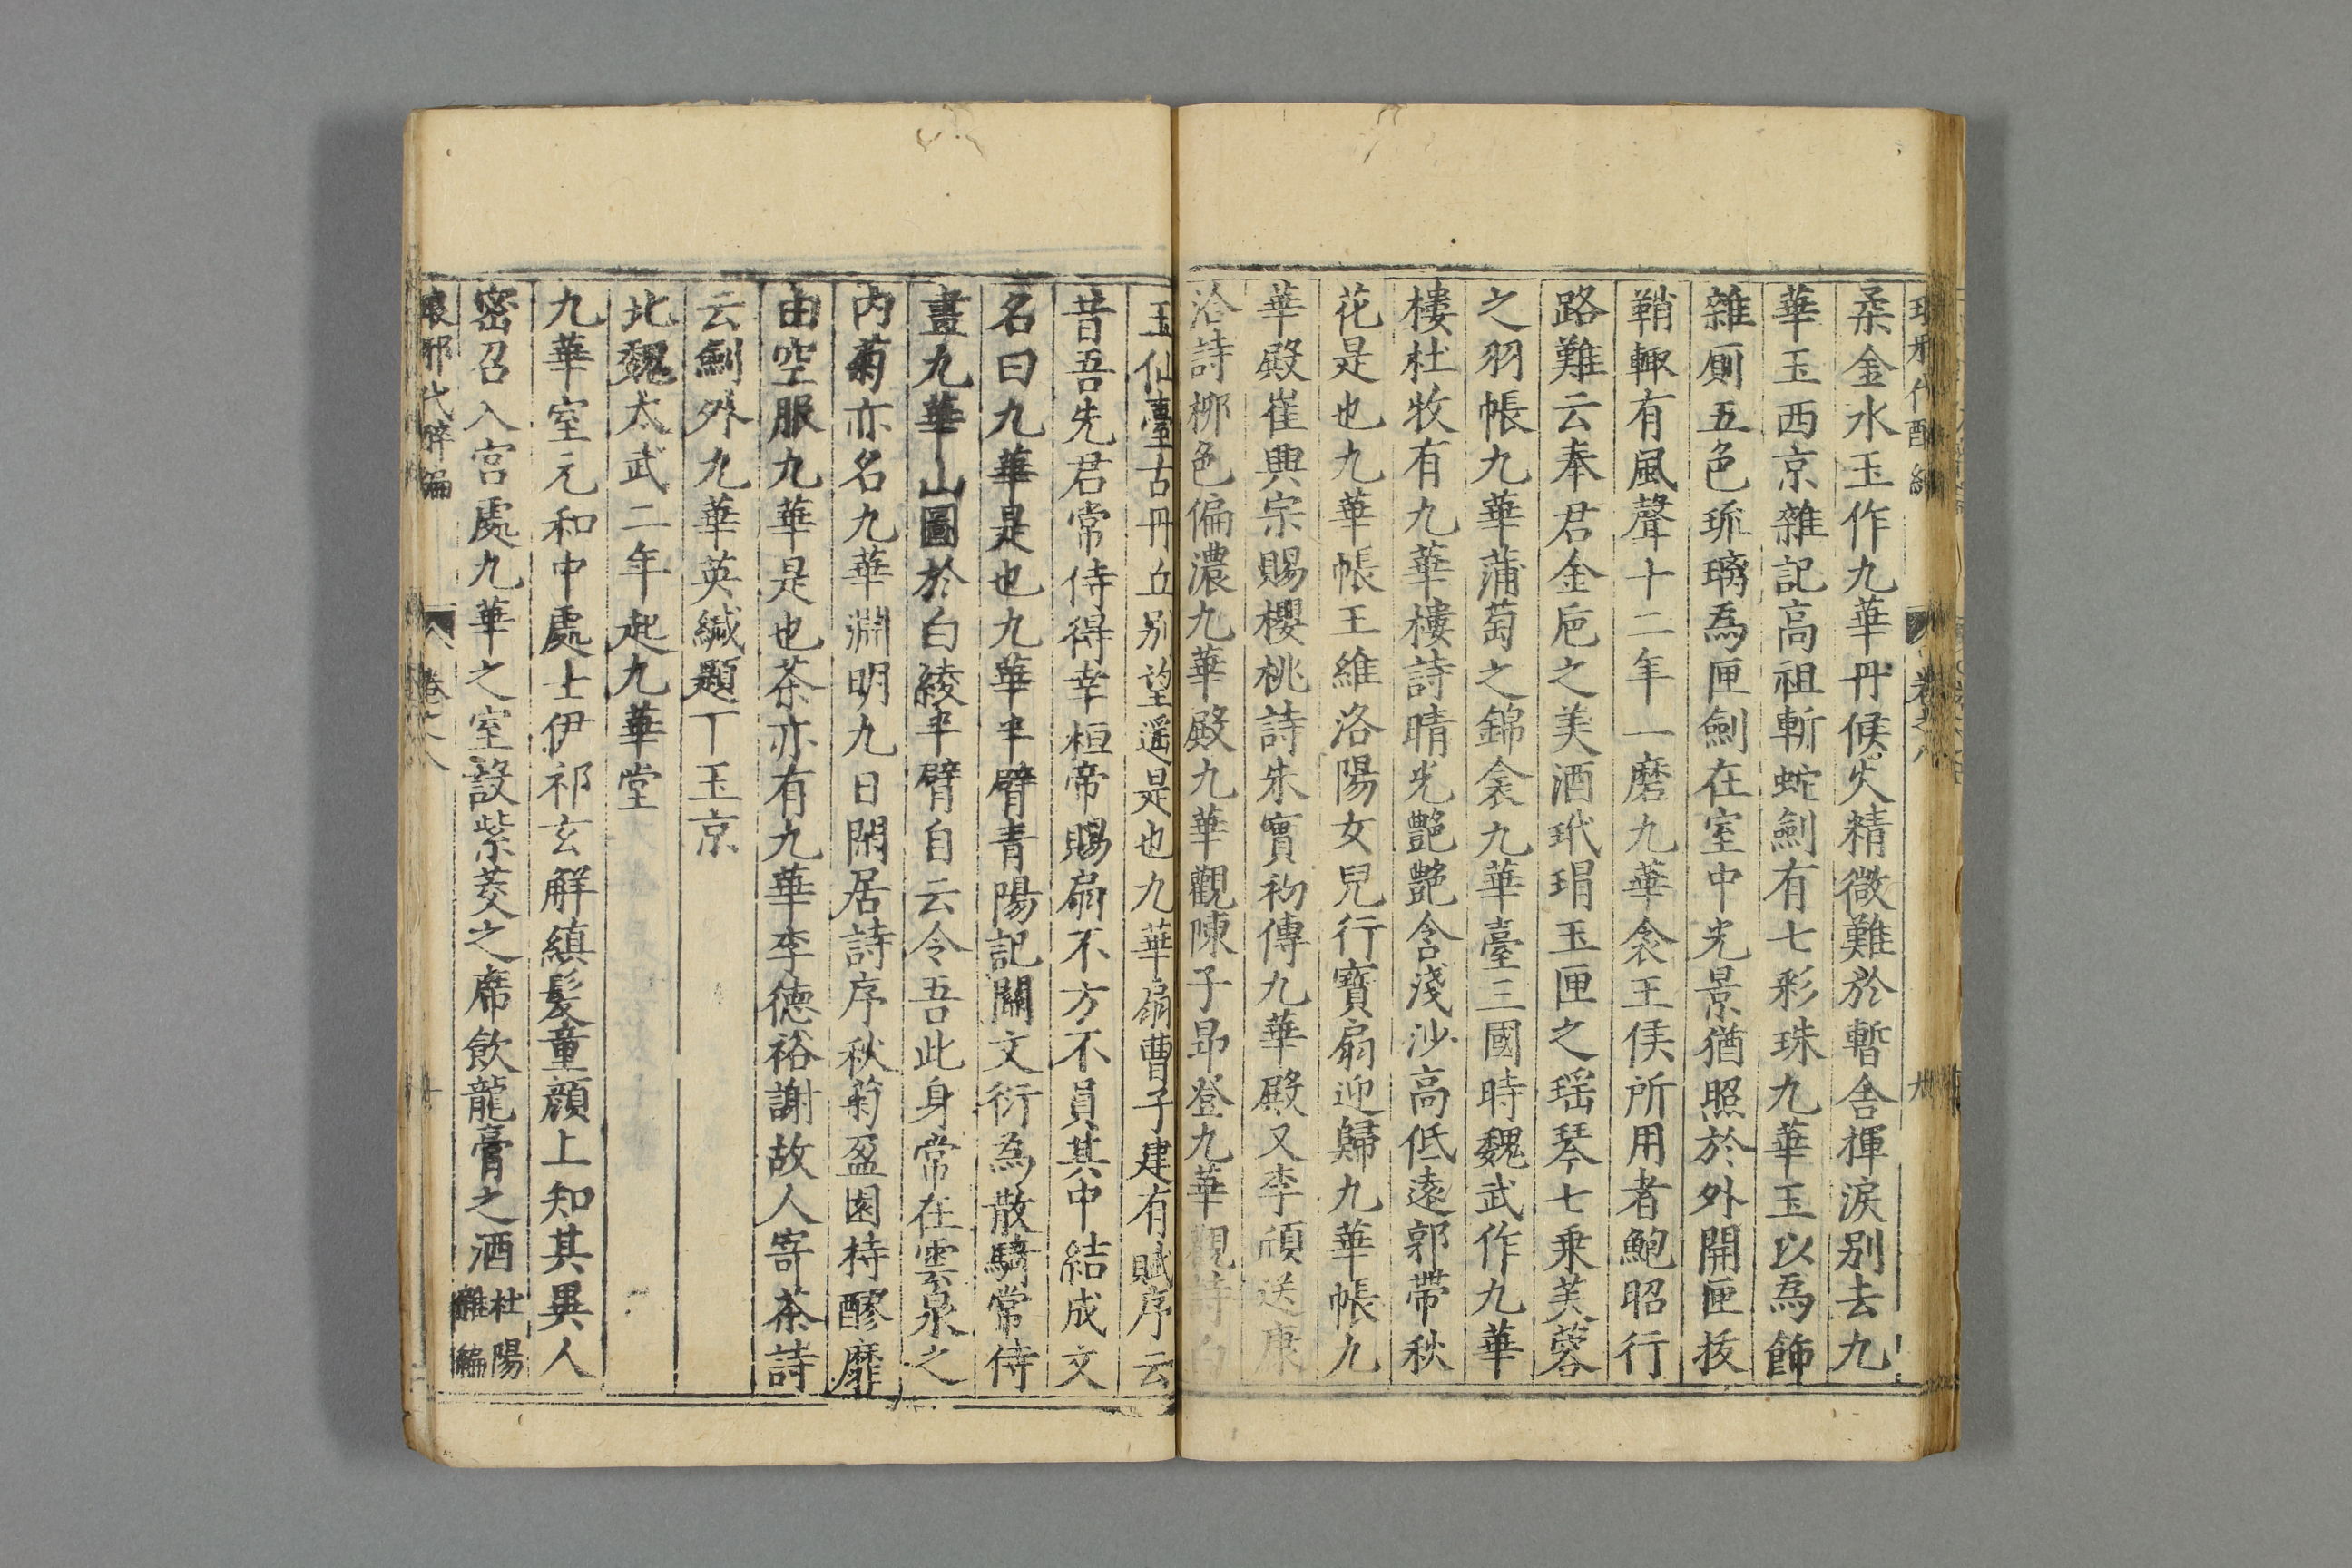 柔金水玉作九華丹候火精微難於暫舍揮淚別去九
華玉西京雜記高祖斬蛇劍有七彩珠九華玉以爲飾
雜厠五色琉璃爲匣劍在室中光景猶照於外開匣拔
鞘輙有風聲十二年一磨九華衾王侯所用者鮑昭行
路難云奉君金巵之美酒玳琩玉匣之瑶琴七乗芙蓉
之羽帳九華蒲萄之錦衾九華臺三國時魏武作九華
樓杜牧有九華樓詩晴光艶艶含淺沙高低遠郭帶秋
花是也九華帳王維洛陽女兒行寶扇迎歸九華帳九
華殿崔興宗賜櫻桃詩朱實初傳九華殿又李頎送康
洽詩柳色偏濃九華殿九華觀陳子昻登九華觀詩白
玉仙臺古丹丘别望遥是也九華扇曹子建有賦序云
昔吾先君常侍得幸桓帝賜扇不方不員其中結成文
名曰九華是也九華半臂青陽記關文衍為散騎常侍
畫九華山圖於白綾半臂自云令吾此身常在雲泉之
内菊亦名九華淵明九日閑居詩序秋菊盈園持醪靡
由空服九華是也茶亦有九華李德裕謝故人寄茶詩
云劍外九華英緘題丁玉京
北魏太武二年起九華堂
九華室元和中處士伊祁玄解縝髪童顔上知其異人
密召入宮處九華之室設紫茭之席飲龍膏之酒杜陽
雜編
琅邪代醉編 卷之八